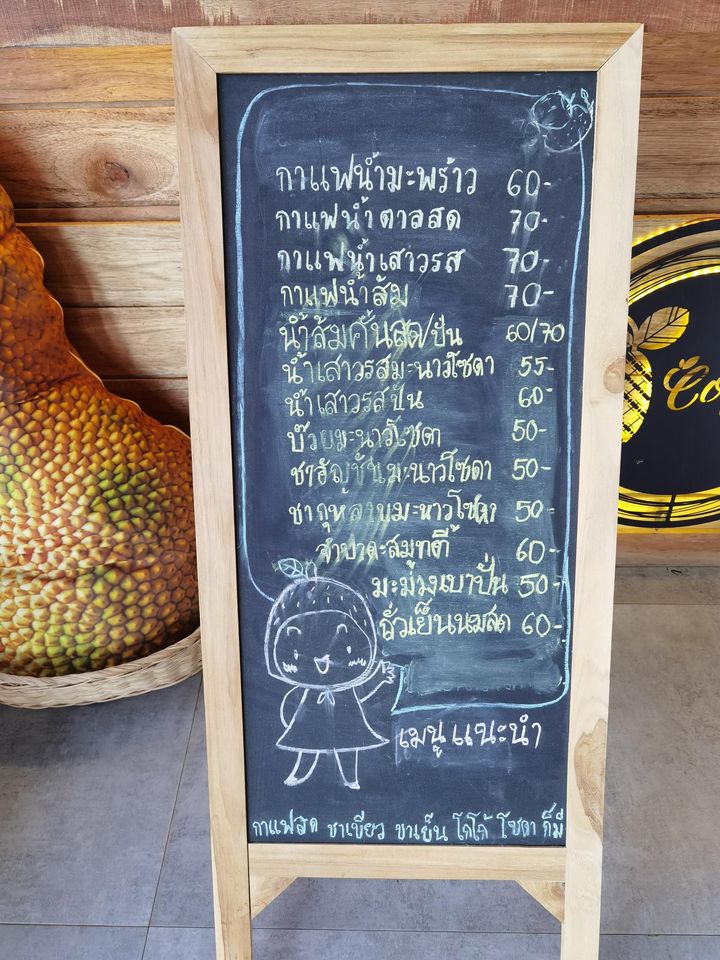 กาแฟน้ำมะพร้าว 60-
กาแฟน้ำตาลสด 70-
กาแฟน้ำเสาวรส 70-
กาแฟน้ำส้ม 70-
น้ำส้มคั้นสด/ปั่น 60/70
น้ำเสาวรสมะนาวโซดา 55-
น้ำเสาวรสปั่น 60-
บ๊วยมะนาวโซดา 50-
ชาอัญชันมะนาวโซดา 50-
ชากุหลาบมะนาวโซดา 50-
จำปาดะสมูทตี้ 60-
มะม่วงเบาปั่น 50-
ถั่วเย็นนมสด 60-
เมนูแนะนำ
กาแฟสด ชาเขียว ชาเย็น โกโก้ โซดา ก็มี